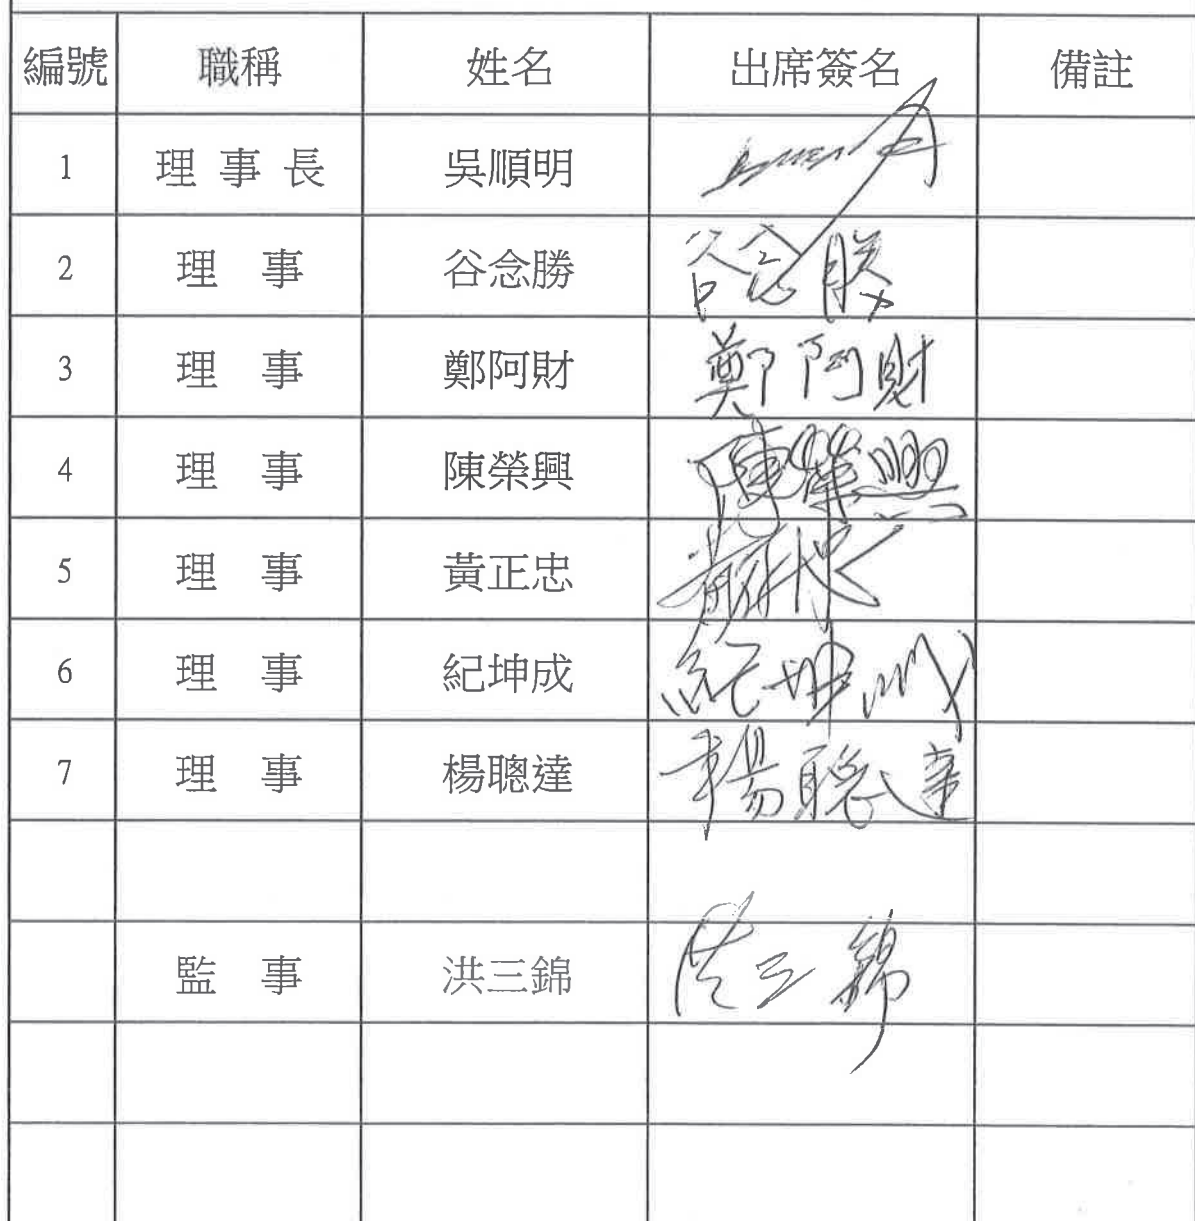 編號 職稱 姓名 出席簽名 備註
1 理事長 吳順明
2 理事 谷念勝 谷念勝
3 理事 鄭阿財 鄭阿財
4 理事 陳榮興 陳榮興
5 理事 黃正忠
6 理事 紀坤成 紀坤成
7 理事 楊聰達 楊聰達
監事 洪三錦 洪三錦